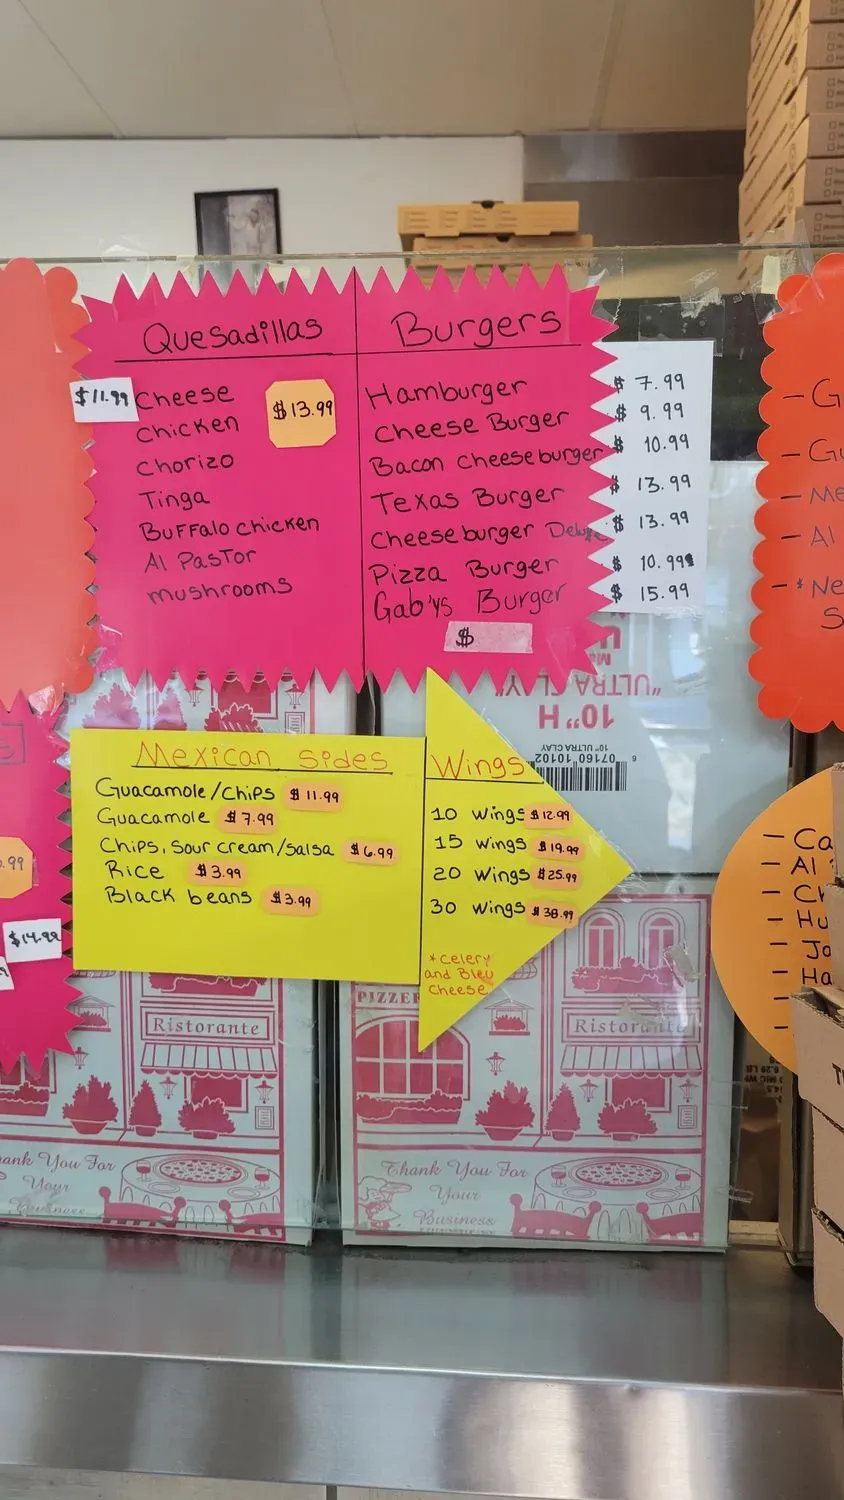 Quesadillas
$11.99 Cheese
$13.99
Chicken
Chorizo
Tinga
Buffalo chicken
Al Pastor
mushrooms
Burgers
Hamburger $ 7.99
Cheese Burger $ 9.99
Bacon Cheeseburger $ 10.99
Texas Burger $ 13.99
Cheeseburger Deluxe $ 13.99
Pizza Burger $ 10.99
Gab'ys Burger $ 15.99
$
Mexican sides
Guacamole/Chips $ 11.99
Guacamole $ 7.99
Chips, Sour cream/Salsa $ 6.99
Rice $ 3.99
Black beans $ 3.99
Wings
10 wings $ 12.99
15 wings $ 19.99
20 wings $ 25.99
30 wings $ 38.99
* Celery
and Bleu
Cheese
"ULTRA CLAY"
10" H
10" ULTRA CLAY
07160 10102 6
.99
$14.99
- G
- Gu
- Me
- Al
- * Ne
S
- Ca
- Al
- Ch
- Hu
- Jo
- Ha
Ristorante
ank You For
Your
Business
PIZZE
Ristorante
Thank You For
Your
Business